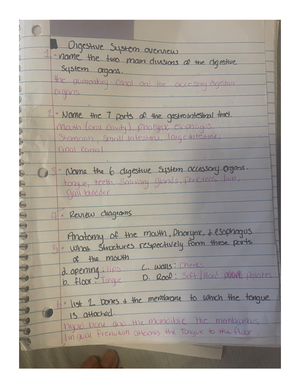 Digestive System overview
1. Name the two main divisions of the digestive
system organs.
the alimentary canal and the accessory digestive
organs
2. Name the 7 parts of the gastrointestinal tract.
Mouth (oral cavity), Pharynx, esophagus
Stomach, Small intestine, large intestine,
anal canal
3. Name the 6 digestive system accessory organs.
tongue, teeth, Salivary glands, Pancreas, liver,
gallbladder
4. Review diagrams
Anatomy of the mouth, Pharynx, & esophagus
5. What structures respectively form these parts
of the mouth
a. opening: lips C. walls: Cheeks
b. Floor: Tongue D. Roof: Soft/Hard Palates
6. list 2 bones & the membrane to which the tongue
is attached.
Hyoid bone and the mandible. The membranous
lingual frenulum attaches the tongue to the floor